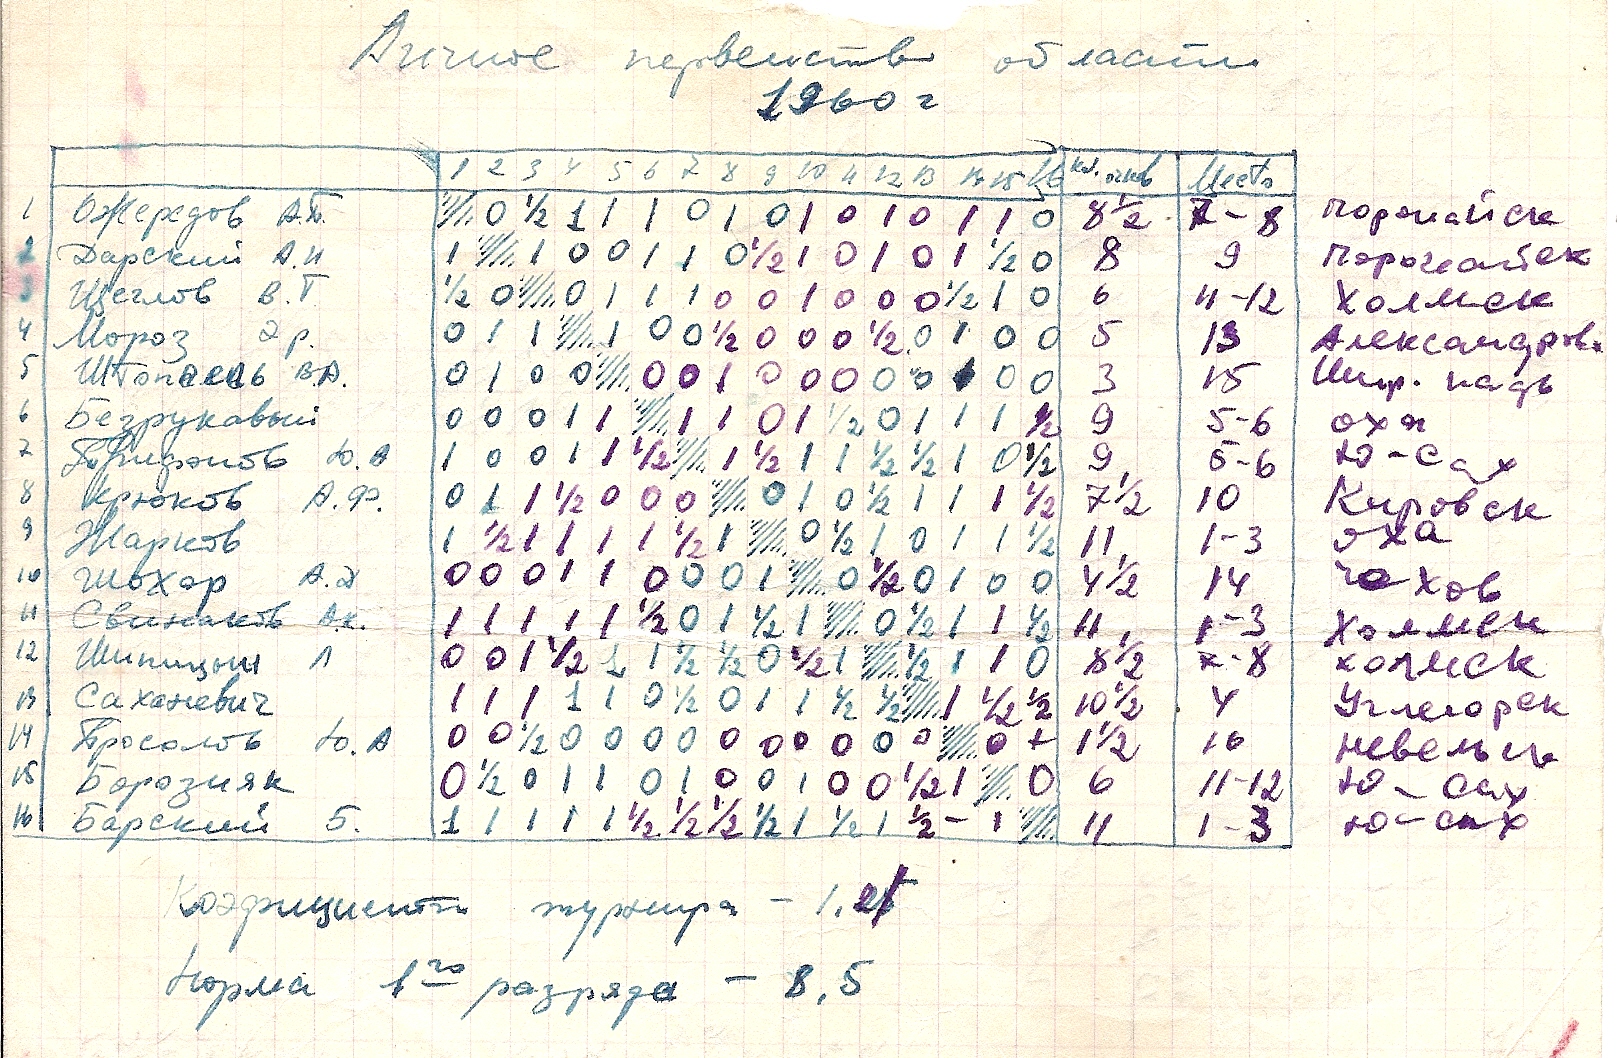 Личное первенство области
1960 г
1 2 3 4 5 6 7 8 9 10 11 12 13 14 15 16 кол. очков Место
1 Ожередов А.П. 0 ½ 1 1 1 0 1 0 1 0 1 0 1 1 0 8½ 7-8 Поронайск
2 Дарский А.И 1 1 0 0 1 1 0 ½ 1 0 1 0 1 ½ 0 8 9 Поронайск
3 Щеглов В.Г ½ 0 0 1 1 1 0 0 1 0 0 0 ½ 1 0 6 11-12 Холмск
4 Мороз Эр. 0 1 1 1 0 0 ½ 0 0 0 ½ 0 1 0 0 5 13 Александров
5 В.А. 0 1 0 0 0 0 1 0 0 0 0 0 1 0 0 3 15 Шир. падь
6 Безрукавый 0 0 0 1 1 1 1 0 1 ½ 0 1 1 1 ½ 9 5-6 Оха
7 Ю.А 1 0 0 1 1 ½ 1 ½ 1 1 ½ ½ 1 0 ½ 9 5-6 Ю-Сах
8 Крюков А.Ф. 0 1 1 ½ 0 0 0 0 1 0 ½ 1 1 1 ½ 7½ 10 Кировск
9 Жарков 1 ½ 1 1 1 1 ½ 1 0 ½ 1 0 1 1 ½ 11 1-3 Оха
10 Шохор А.Д 0 0 0 1 1 0 0 0 1 0 ½ 0 1 0 0 4½ 14 Чехов
11 Ак. 1 1 1 1 1 ½ 0 1 ½ 1 0 ½ 1 1 ½ 11 1-3 Холмск
12 Шипицын Л 0 0 1 ½ 1 1 ½ ½ 0 ½ 1 ½ 1 1 0 8½ 7-8 Холмск
13 Саханевич 1 1 1 1 1 0 ½ 0 1 1 ½ ½ 1 ½ ½ 10½ 4 Углегорск
14 Просолов Ю.А 0 0 ½ 0 0 0 0 0 0 0 0 0 0 0 + 1½ 16 Невельск
15 Борозняк 0 ½ 0 1 1 0 1 0 0 1 0 0 ½ 1 0 6 11-12 Ю-Сах
16 Барский Б. 1 1 1 1 1 ½ ½ ½ ½ 1 ½ 1 ½ - 1 11 1-3 Ю-Сах
Коэфициент турнира - 1,
Норма 1го разряда - 8,5